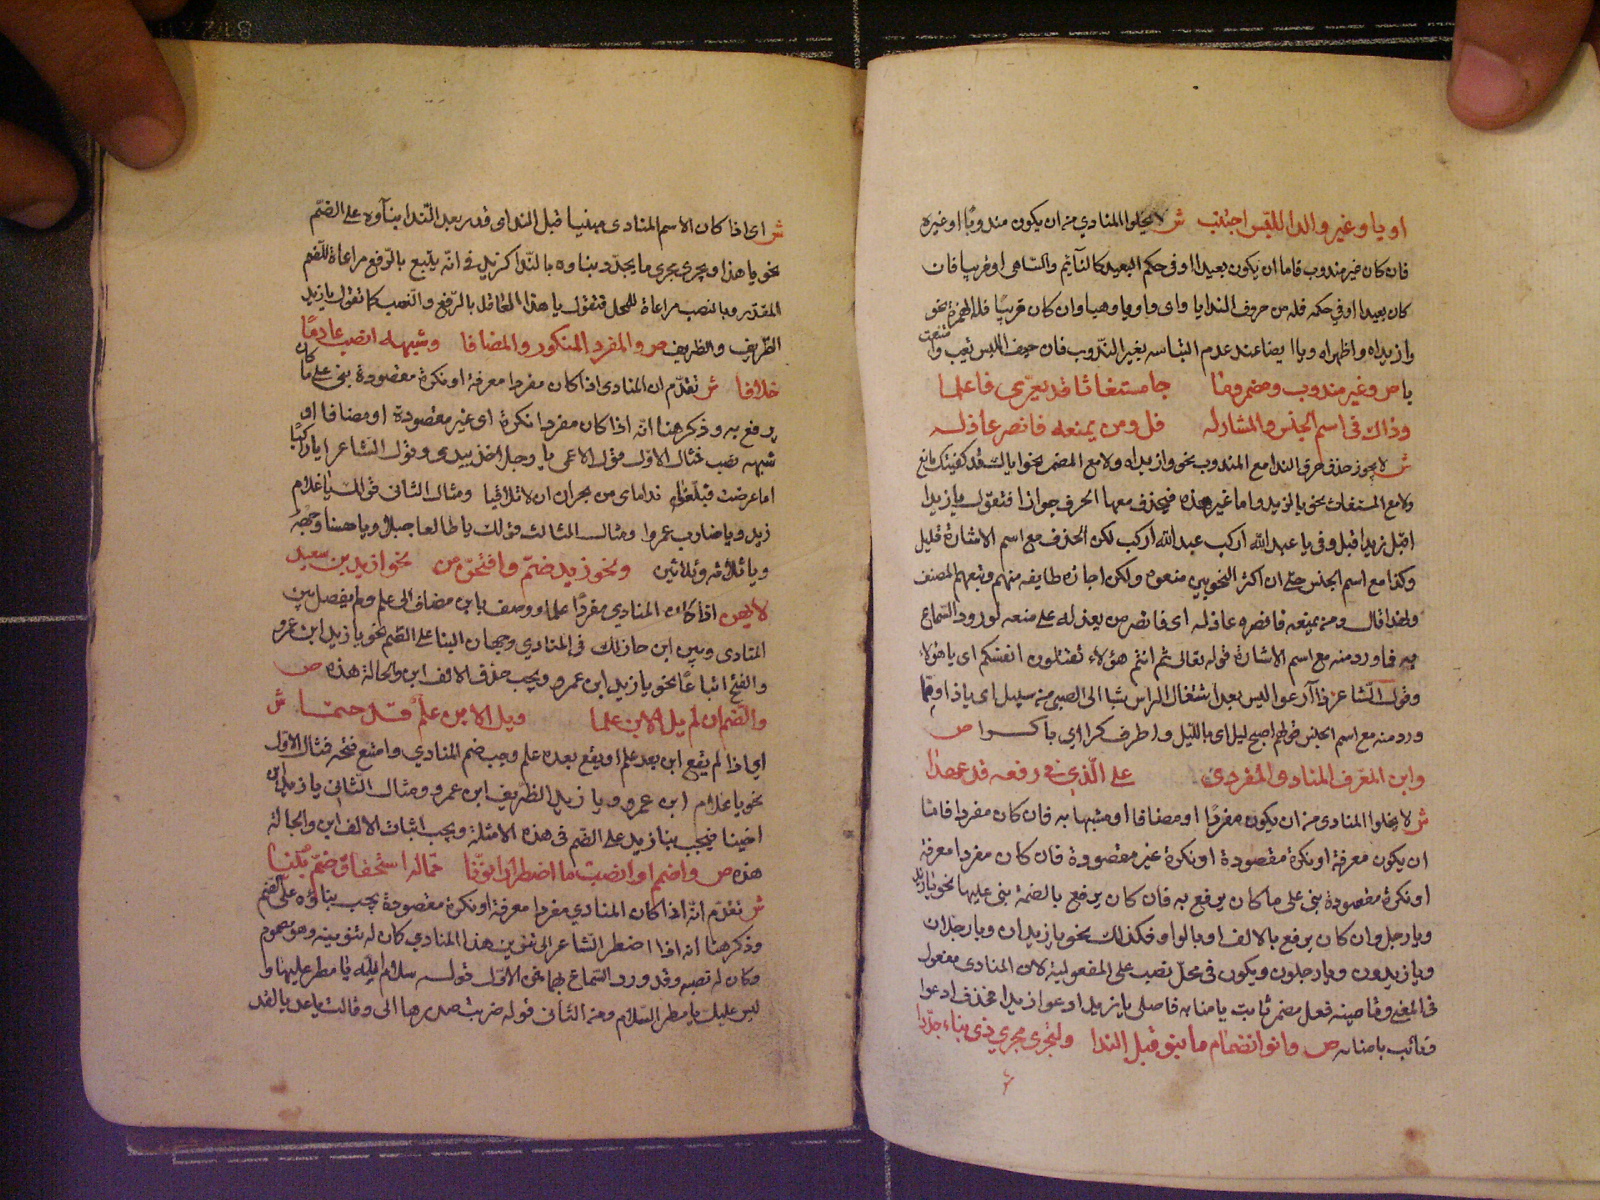 او يا وغير وا لدا اللبس اجتنب ش لا يخلوا المنادي من ان يكون مندوبًا او غيره
فان كان غير مندوب فاما ان يكون بعيدا او في حكم البعيد كالنائم والساهي او قريبا فان
كان بعيدا او في حكمه فله من حروف الندا يا واى وا ويا وهيا وان كان قريبًا فله الهمزة نحو
وازيداه واظهراه ويا ايضا عند عدم التباسه بغير الندوب فان خيف اللبس تعين وا وامتنعت
يا ص وغير مندوب ومضمر وما جا مستغاثا قد يعرّى فاعلما
وذاك في اسم الجنس والمشار له قل ومن يمنعه فانصر عاذله
ش لا يجوز حذف حرف الندا مع المندوب نحو وازيداه ولا مع المضمر نحو يا اياك قد كفيتك
ولا مع المستغاث نحو يا لزيد واما غير هذه فيحذف معها الحرف جوازا فتقول يا زيد
اقبل زيد اقبل وفي يا عبد الله اركب عبد الله اركب لكن الحذف مع اسم الاشارة قليل
وكذا مع اسم الجنس حتى ان اكثر النحويين منعوه ولكن اجازه طايفه منهم وتبعهم المصنف
ولهذا قال ومن يمنعه فانصر عاذله اى فانصر من يعذله على منعه لورود السماع
به فما ورد منه مع اسم الاشارة قوله تعالى ثم انتم هؤلاء تقتلون انفسكم اى يا هؤلاء
وقول الشاعر ذا ارعوا فليس بعد اشتعال الراس شيبا الى الصبى من سبيل اى يا ذا ومما
ورد منه مع اسم الجنس قولهم اصبح ليل اى يا ليل واطرق كرا اى يا كرا ص
وابن المعرف المنادى المفردى على الّذي في رفعه قد عهدا
ش لا يخلوا المنادى من ان يكون مفردًا او مضافا او مشبها به فان كان مفردا فاما
ان يكون معرفة او نكرة مقصودة او نكرة غير مقصودة فان كان مفردا معرفة
او نكرة مقصودة بنى على ما كان يرفع به فان كان يرفع بالضمة بنى عليها نحو يا زيد
ويا رجل وان كان يرفع بالالف او بالواو فكذلك نحو يا زيدان ويا رجلان
ويا زيدون ويا رجلون ويكون في محل نصب على المفعولية لان المنادى مفعول
في المعنى وناصبه فعل مضمر نابت يا منابه فاصل يا زيد ادعو زيدا فحذف ادعوا
ونابت يا منابه ص وانو انضمام ما بنو قبل الندا وليجرى مجرى ذى بناء جدّدا
ش اى اذا كان الاسم المنادى مبنيا قبل الندا قدر بعد الندا بناؤه على الضمّ
نحو يا هذا ويجرى مجرى ما يجدّد بناوه بالندا كزيد في انه يتبع بالرفع مراعاة للضم
المقدر وبالنصب مراعاة للمحل فتقول يا هذا العاقل بالرفع والنصب كما تقول يا زيد
الظريف والظريف ص والمفرد المنكور والمضافا وشبهه انصب عادمًا
خلافا ش تقدّم ان المنادى اذا كان مفردا معرفة او نكرة مقصودة بنى على ما كان
يرفع به وذكر هنا انه اذا كان مفردا نكرة اى غير مقصودة او مضافا او
شبهه نصب فمثال الاول قول الاعمى يا رجلا خذ بيدى وقول الشاعر ايا راكبًا
اما عرضت فبلّغا نداماى من نجران ان لا تلاقيا ومثال الثانى قولك يا غلام
زيد ويا ضارب عمروا ومثال الثالث قولك يا طالعا جبلا ويا حسنا وجهه
ويا ثلاثة وثلاثين ونحو زيد ضمّ وافتحنّ من نحو ازيد بن سعيد
لا تهن اذا كان المنادى مفردًا علما ووصف بابن مضاف الى علم ولم يفصل بين
المنادى وبين ابن جاز لك في المنادي وجهان البنا على الضم نحو يا زيد ابن عمرو
والفتح اتباعًا نحو يا زيد ابن عمرو ويجب حذف الالف ابن والحالة هذه ص
والضم ان لم يل الابن علما ويل الابن علم قد حتما ش
اي اذا لم يقع ابن بعد علم او يقع بعده علم وجب ضم المنادي وامتنع فتحه فمثال الاول
نحو يا غلام ابن عمرو ويا زيد الظريف ابن عمرو ومثال الثاني يا زيد ابن
اخينا فيجب بنا زيد على الضم في هذه الامثلة ويجب اثبات الالف ابن والحالة
هذه ص واضمم او انصب ما اضطرارا نوّنا مما له استحقاق ضمّ بيّنا
ش تقدّم انه اذا كان المنادى مفردا معرفة او نكرة مقصودة يجب بناؤه على الضم
وذكر هنا انه اذا اضطر الشاعر الى تنوين هذا المنادي كان له تنوينه وهو مضموم
وكان له نصبه وقد ورد السماع بهما فمن الاول قوله سلام الله يا مطر عليها و
ليس عليك يا مطر السلام ومن الثانى قوله ضربت صدرها الى وقالت يا عديا لقد